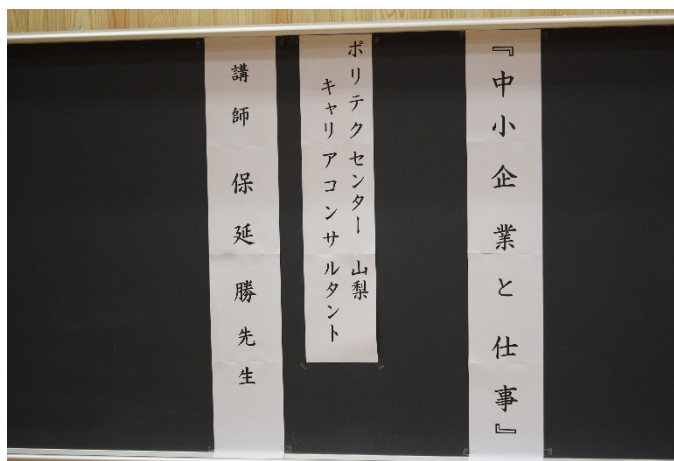 『中小企業と仕事』
ポリテクセンター 山梨
キャリアコンサルタント
講師 保延 勝先生